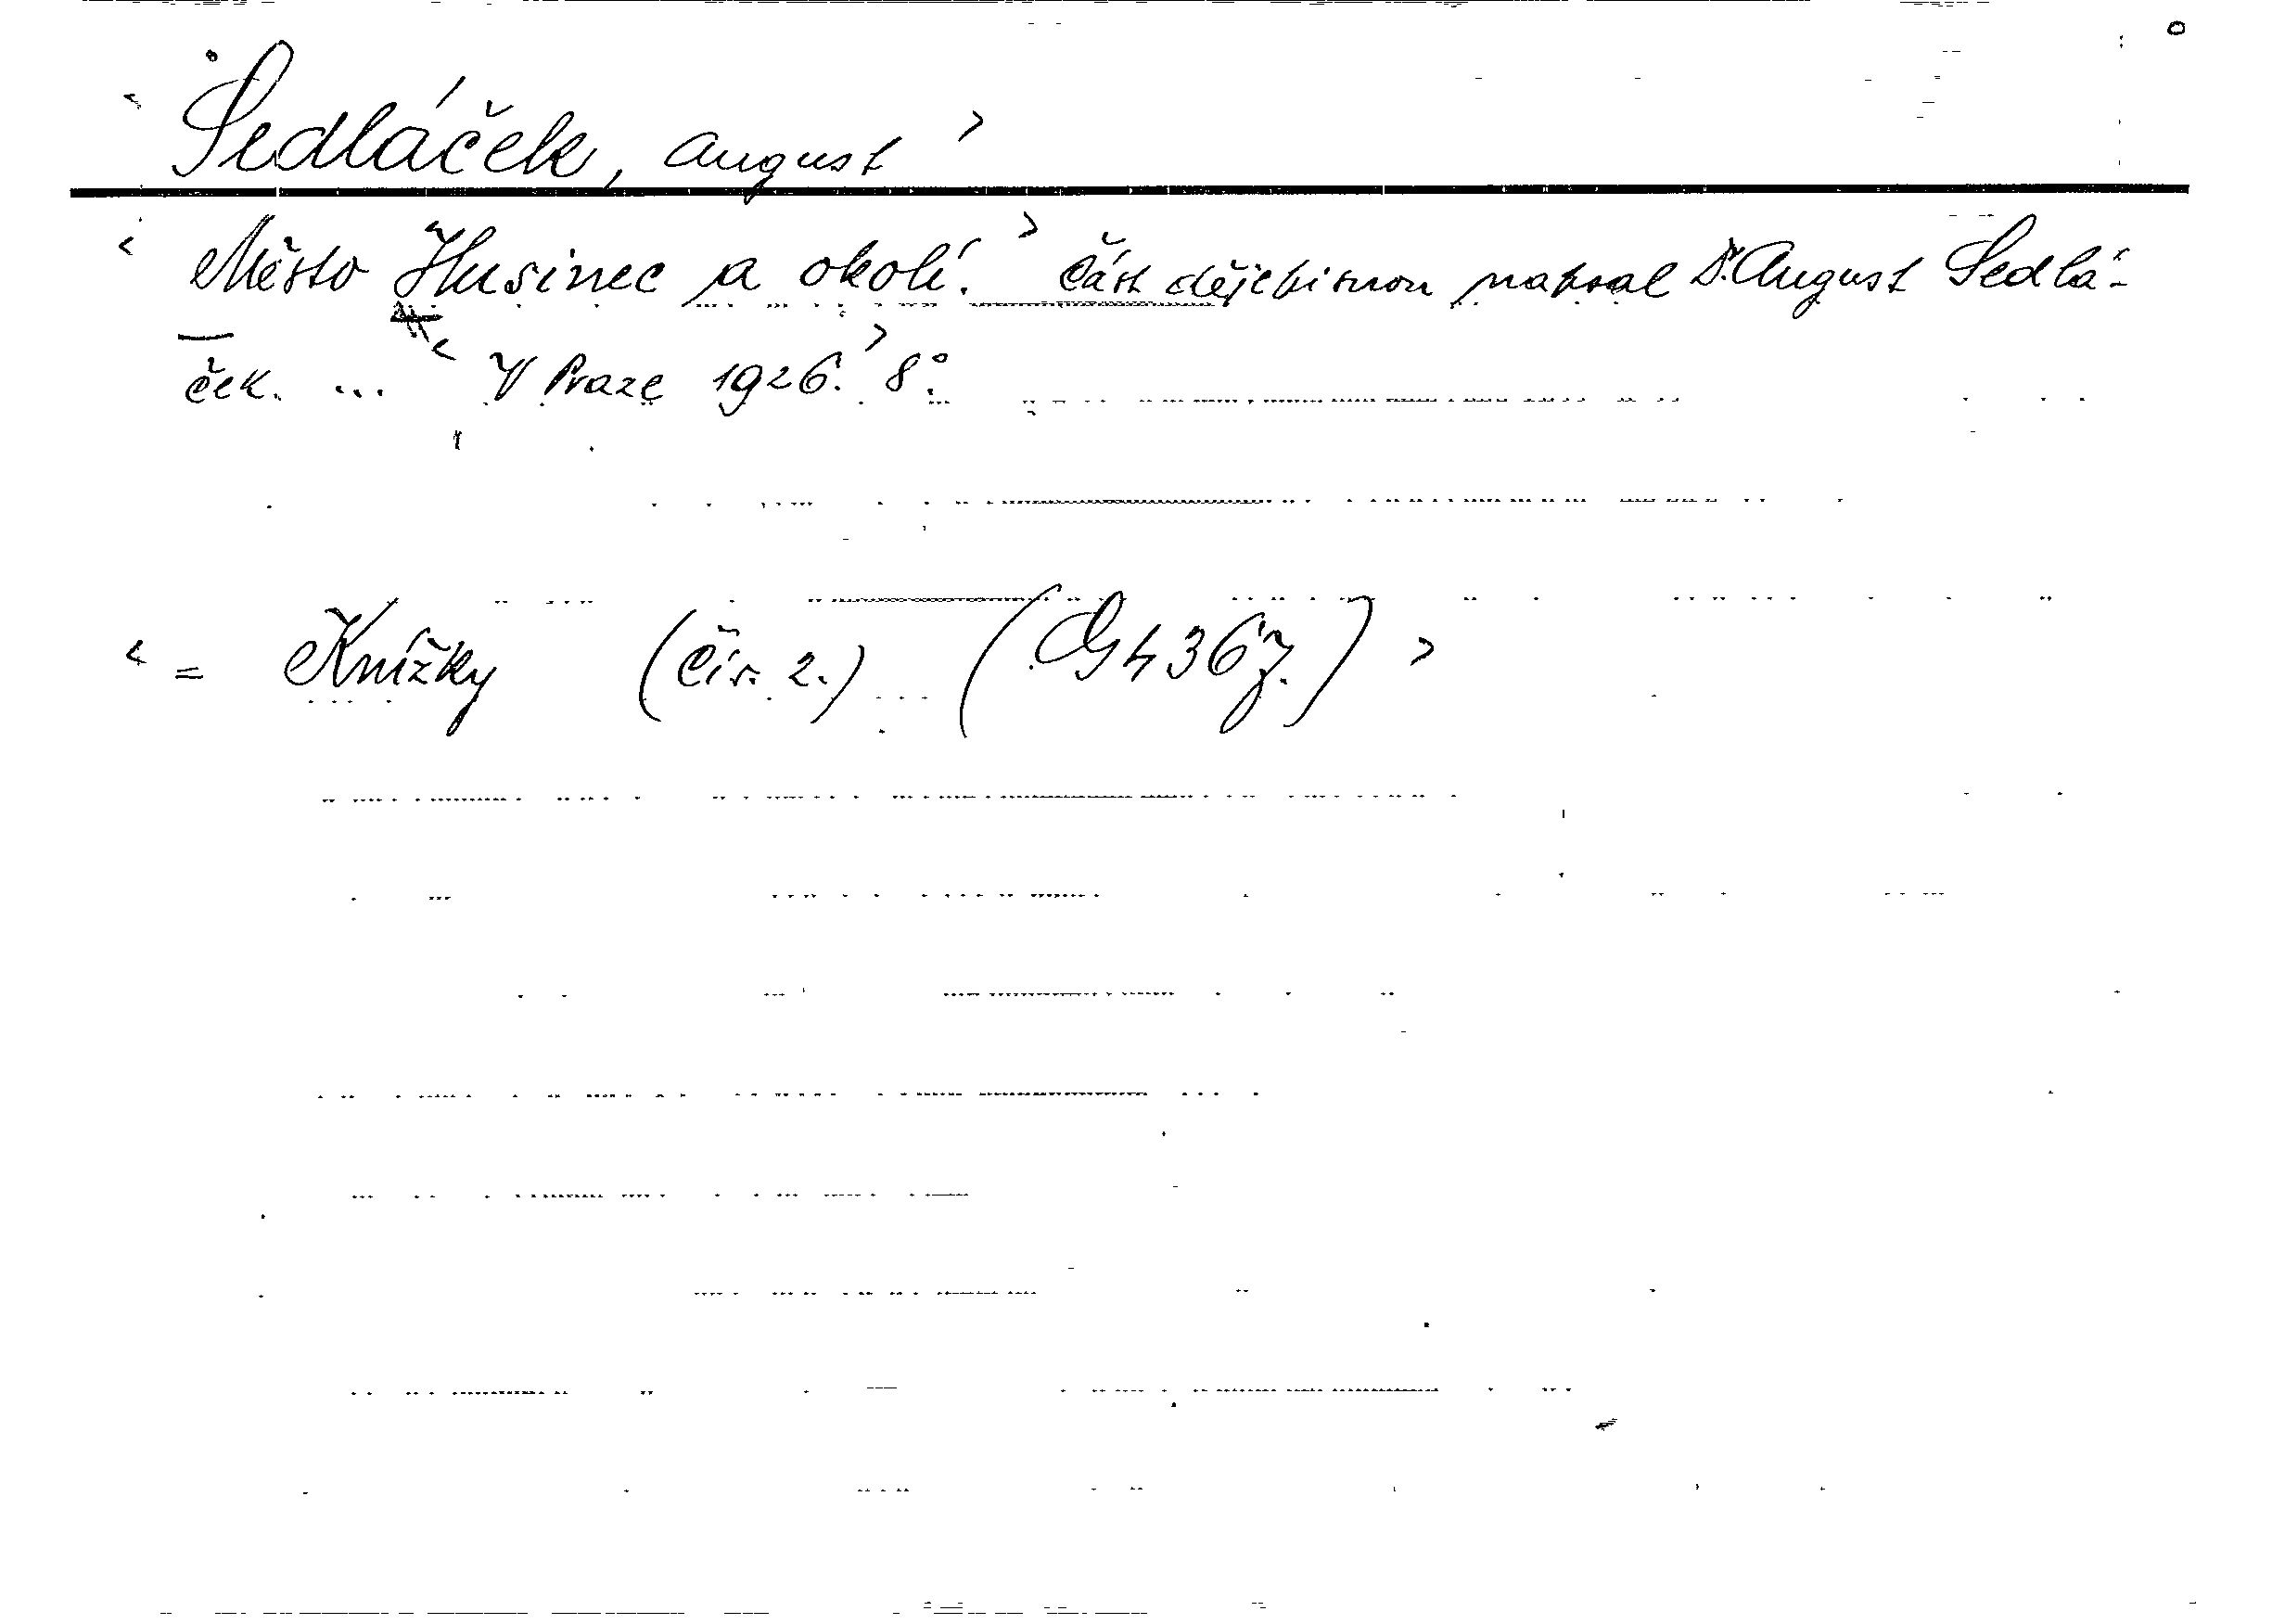 < Sedláček, August >
< Město Husinec a okolí. > Část dějepisnou napsal Dr. August Sedlá-
ček. ... < V Praze 1926. > 8°.
< = Knížky (čís. 2.) (G 4367.) >